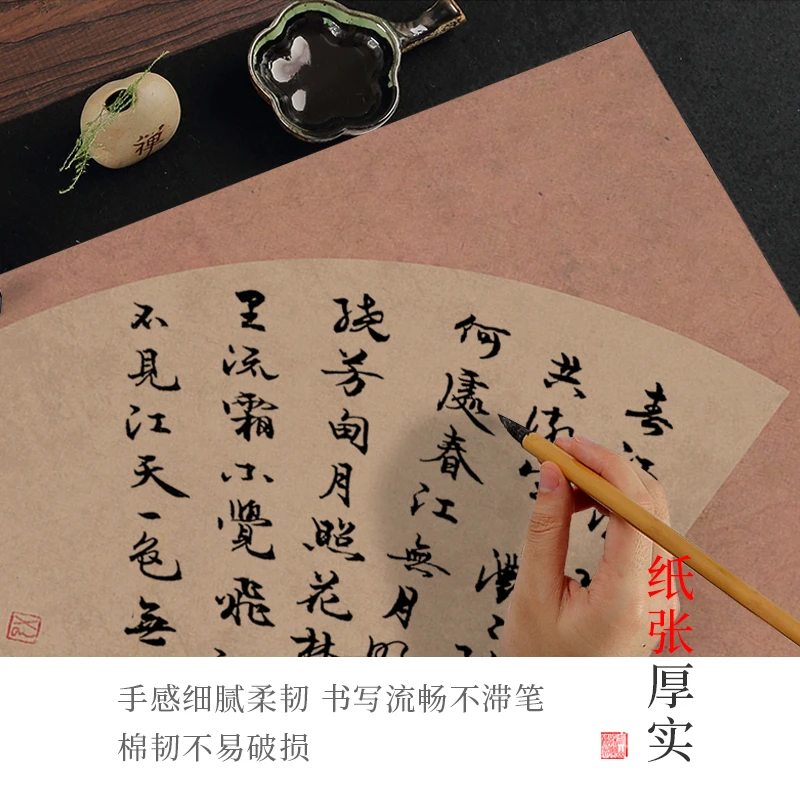 春江
共
灧
何處春江無月明
繞芳甸月照花林
里流霜不覺飛
不見江天一色無
禪
纸张
厚实
手感细腻柔韧 书写流畅不滞笔
棉韧不易破损